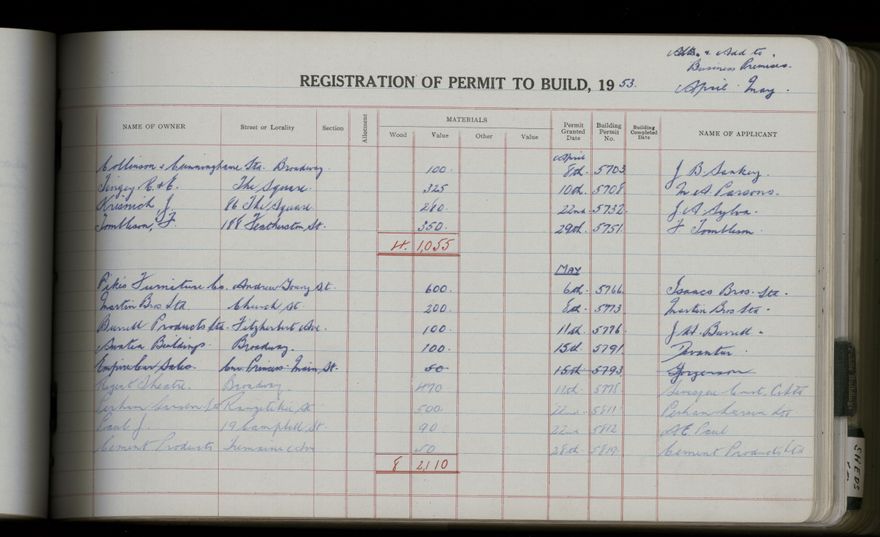 Add to
Business Premises.
April May.
REGISTRATION OF PERMIT TO BUILD, 1953.
NAME OF OWNER Street or Locality Section Allotment MATERIALS Wood Value Other Value Permit Granted Date Building Permit No. Building Completed Date NAME OF APPLICANT
April
Collinson & Cunninghame Ltd. Broadway 100. 8th. 5703 J B Sankey.
Tingey R & E. The Square. 325 10th. 5708 Parsons.
J. 86 The Square. 280 22nd. 5732 J. A. Sylva.
Tombleson, F. 188 Featherston St. 350. 29th. 5751 F Tombleson
4. 1,055
MAY
Pikes Furniture Co. Andrew Young St 600. 6th. 5766 Isaacs Bros. Ltd.
Martin Bros Ltd. Church St. 200. 8th. 5773 Martin Bros Ltd.
Burrell Products Ltd. Fitzherbert Ave. 100. 11th. 5776 J. W. Burrell
Buildings Broadway. 100. 15th. 5791
Empire Car Sales. Cnr Princess Main St. 50. 15th. 5793 Jorgenson
Regent Theatre. Broadway 470 5778
Rangitikei St 500 22nd 5811
Paul J. 19 Campbell St. 90 22nd 5812 Paul
Cement Products Tremaine Ave 50 28th 5819 Cement Products Ltd
8 2110
SHEDS